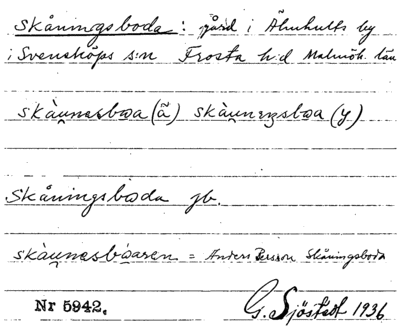 Skåningsboda: gård i Älmhults by
i Svensköps s:n Frosta h:d Malmöh. län
skàu̯nasbωa (ã) skàu̯nıŋsbωa (y.)
Skåningsboda jb.
skàu̯nasbòaren = Anders Persson Skåningsboda
Nr 5942. G. Sjöstedt 1936